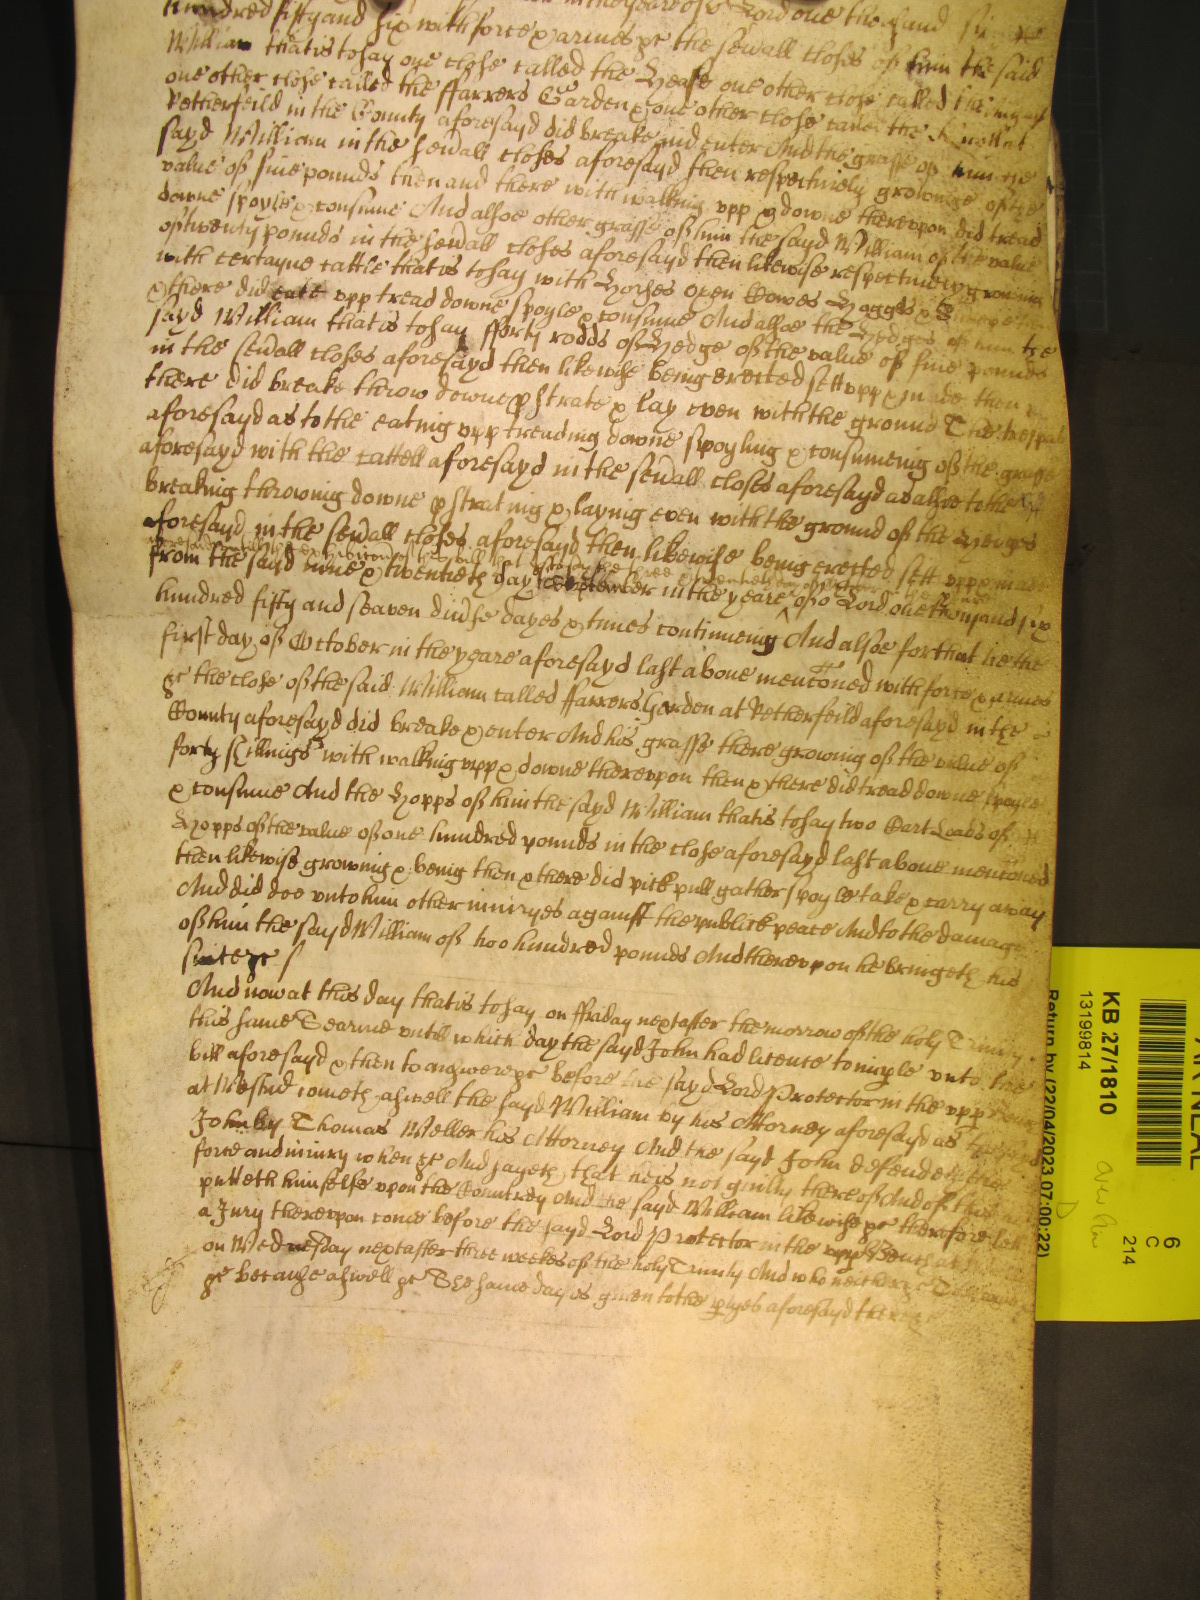 hundred fifty and six with force & armes &c the sevall closes of him the said
William that is to say one close called the Hease one other close called the
one other close called the ffarrers Garden & one other close called the
Retherfeild in the County aforesayd did breake and enter And the grasse of him the
sayd William in the sevall closes aforesayd then respectively growing of the
value of five pounds then and there with walking upp & downe thereupon did tread
downe spoyle & consume And alsoe other grasse of him the sayd William of the value
of twenty pounds in the sevall closes aforesayd then likewise respectively growing
with certayne cattle that is to say with Horses Oxen Cowes Hogges &
& there did eate upp tread downe spoyle & consume And alsoe the Hedges of him the
sayd William that is to say fforty rodds of Hedge of the value of five pounds
in the sevall closes aforesayd then likewise being erected sett upp & made then &
there did breake throw downe pstrate & lay even with the ground The trespas
aforesayd as to the eating upp treading downe spoyling & consumeing of the grasse
aforesayd with the cattell aforesayd in the sevall closes aforesayd as alsoe to the
breaking throwing downe pstrating & laying even with the ground of the Hedges
aforesayd in the sevall closes aforesayd then likewise being erected sett upp & made
from the said nine & twentieth day of September in the yeare of or Lord one thousand six
hundred fifty and seaven divse dayes & times continueing And alsoe for that he the
first day of October in the yeare aforesayd last above menconed with force & armes
&c the close of the said William called ffarrers Garden at Retherfeild aforesayd in the
County aforesayd did breake & enter And his grasse there growing of the value of
forty shillings with walking upp & downe thereupon then & there did tread downe spoyle
& consume And the Hopps of him the sayd William that is to say two Cart Loads of
Hopps of the value of one hundred pounds in the close aforesayd last above menconed
then likewise growing & being then & there did pick pull gather spoyle take & carry away
And did doe unto him other iniuryes against the publick peace And to the damage
of him the sayd William of two hundred pounds And thereupon he bringeth his
suite &c
And now at this day that is to say on ffriday next after the morrow of the holy Trinity
this same Tearme untill which day the sayd John had licence to imple unto the
bill aforesayd & then to answere &c before the sayd Lord Protector in the upp Bench
at Westmr cometh aswell the sayd William by his Attorney aforesayd as the sayd
John by Thomas Weller his Attorney And the sayd John defendeth the
force and iniury when &c And sayeth that he is not guilty thereof And of this he
putteth himselfe upon the Countrey And the sayd William likewise &c Therefore let
a Jury thereupon come before the sayd Lord Protector in the upp Bench at
on Wednesday next after three weekes of the holy Trinity And who neither &c To
&c because aswell &c The same day is given to the ptyes aforesayd there &c
AR NEAL
6
C
214
KB 27/1810
13199814
Return by (22/04/2023 07:00:22)